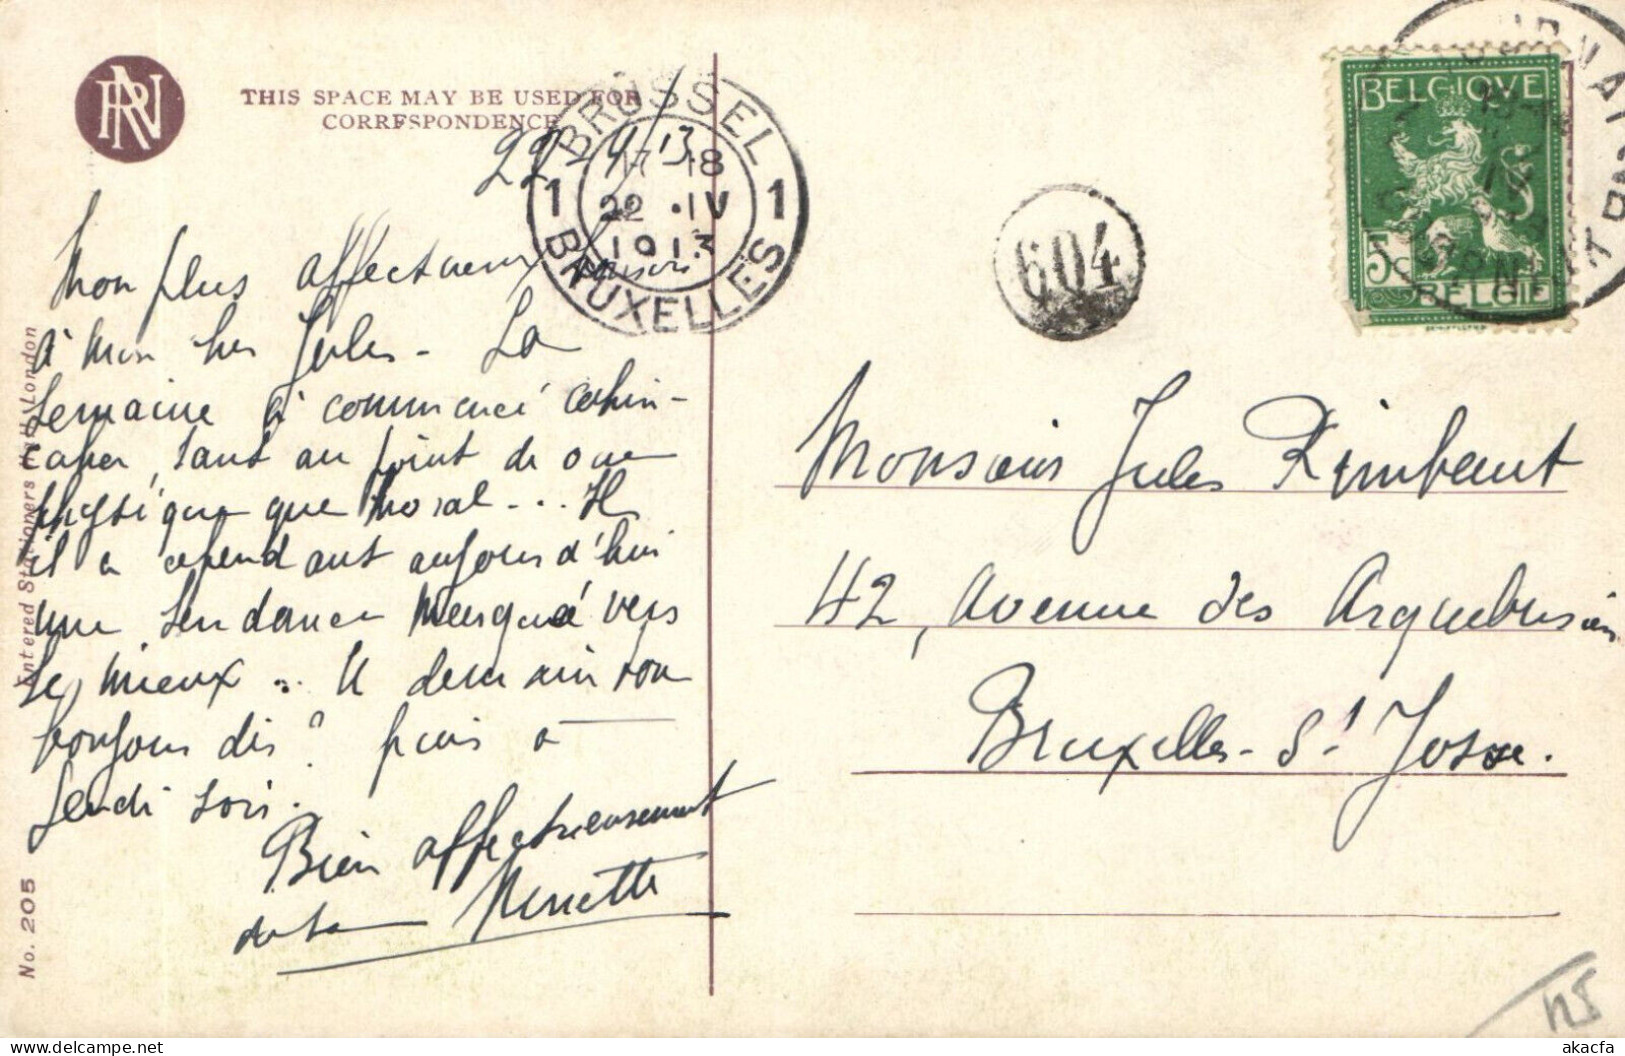 RN
THIS SPACE MAY BE USED FOR
CORRESPONDENCE
22/4/13
BRUSSEL
17-18
1 22 · IV 1
1913
BRUXELLES
604
BELGIQUE
5c
BELGIË
Mon plus affectueux
à mon cher Jules - La
semaine a commencé cahin-
caha, tant au point de vue
physique que moral...
il a cependant aujourd'hui
une tendance marquée vers
le mieux... A demain ton
bonjour dis? puis à
Jeudi soir.
Bien affectueusement
de ta Ninette
Monsieur Jules Rimbaut
42, Avenue des Arquebusiers
Bruxelles - St Josse.
Entered Stationers Hall London
No. 205
125
akacfa